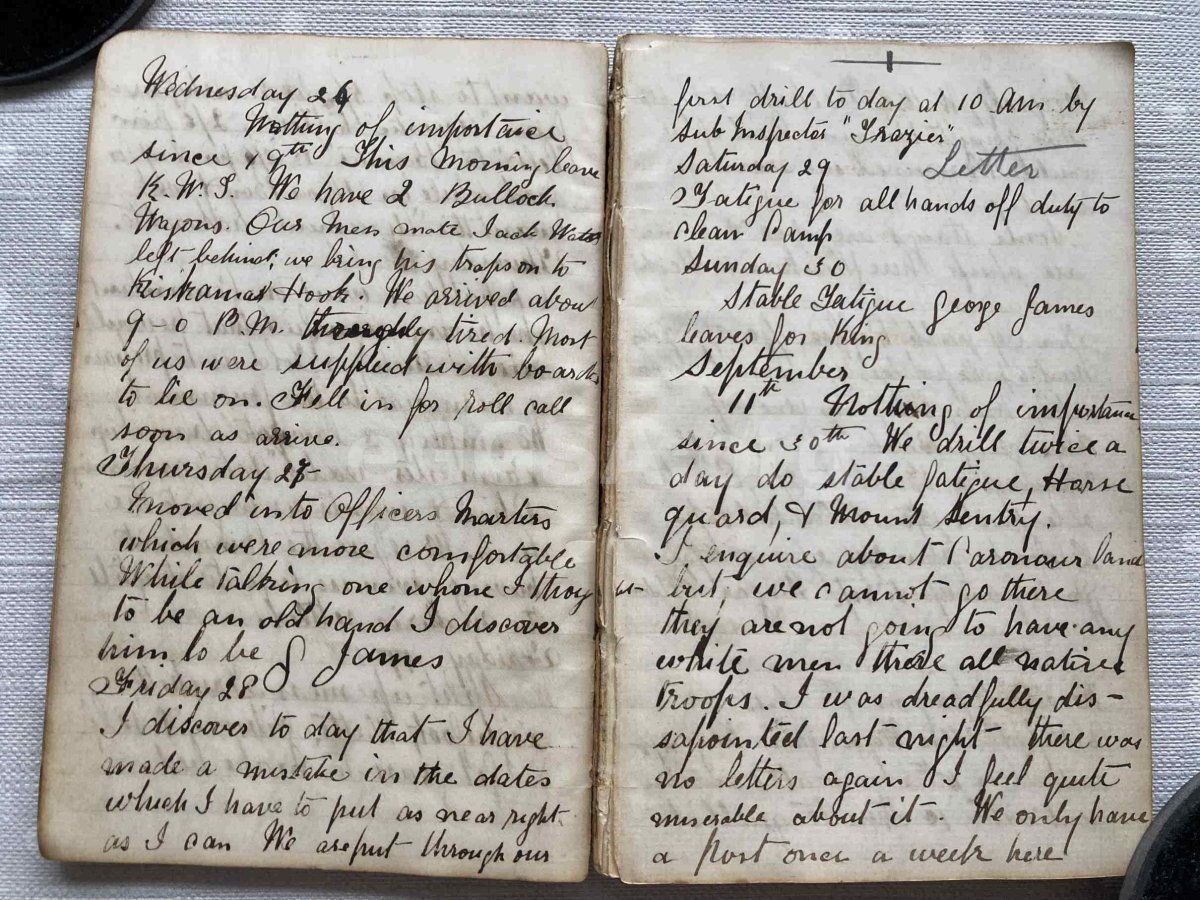 Wednesday 26
Nothing of importance
since 19th This Morning leave
K. W. T. We have 2 Bullock
Wagons. Our Mess mate Jack Waters
left behind; we bring his traps on to
Keiskamas Hook. We arrived about
9-0 P.M. thoroughly tired. Most
of us were supplied with boards
to lie on. Fell in for roll call
soon as arrive.
Thursday 27
Moved into Officers Quarters
which were more comfortable
While talking one whone I thought
to be an old hand I discover
him to be G James
Friday 28
I discover to day that I have
made a mistake in the dates
which I have to put as near right
as I can We are put through our
first drill to day at 10 Am. by
Sub Inspector "Frazier"
Saturday 29 Letter
Fatigue for all hands off duty to
clean Camp
Sunday 30
Stable Fatigue george James
leaves for King
September
11th Nothing of importance
since 30th We drill twice a
day do stable fatigue, Horse
guard, & Mount Sentry.
I enquire about land
but we cannot go there
they are not going to have any
white men there all native
troops. I was dreadfully dis-
sapointed last night there was
no letters again I feel quite
miserable about it. We only have
a post once a week here